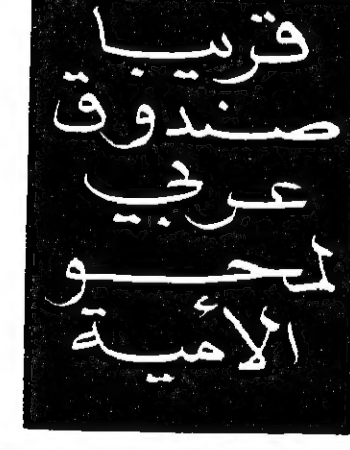 قريبا
صندوق
عربي
لمحو
الأمية